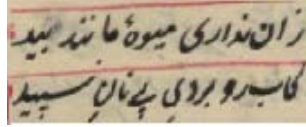 زان نداری میوهٔ مانند بید
کاب رو بردی پی نان سپید